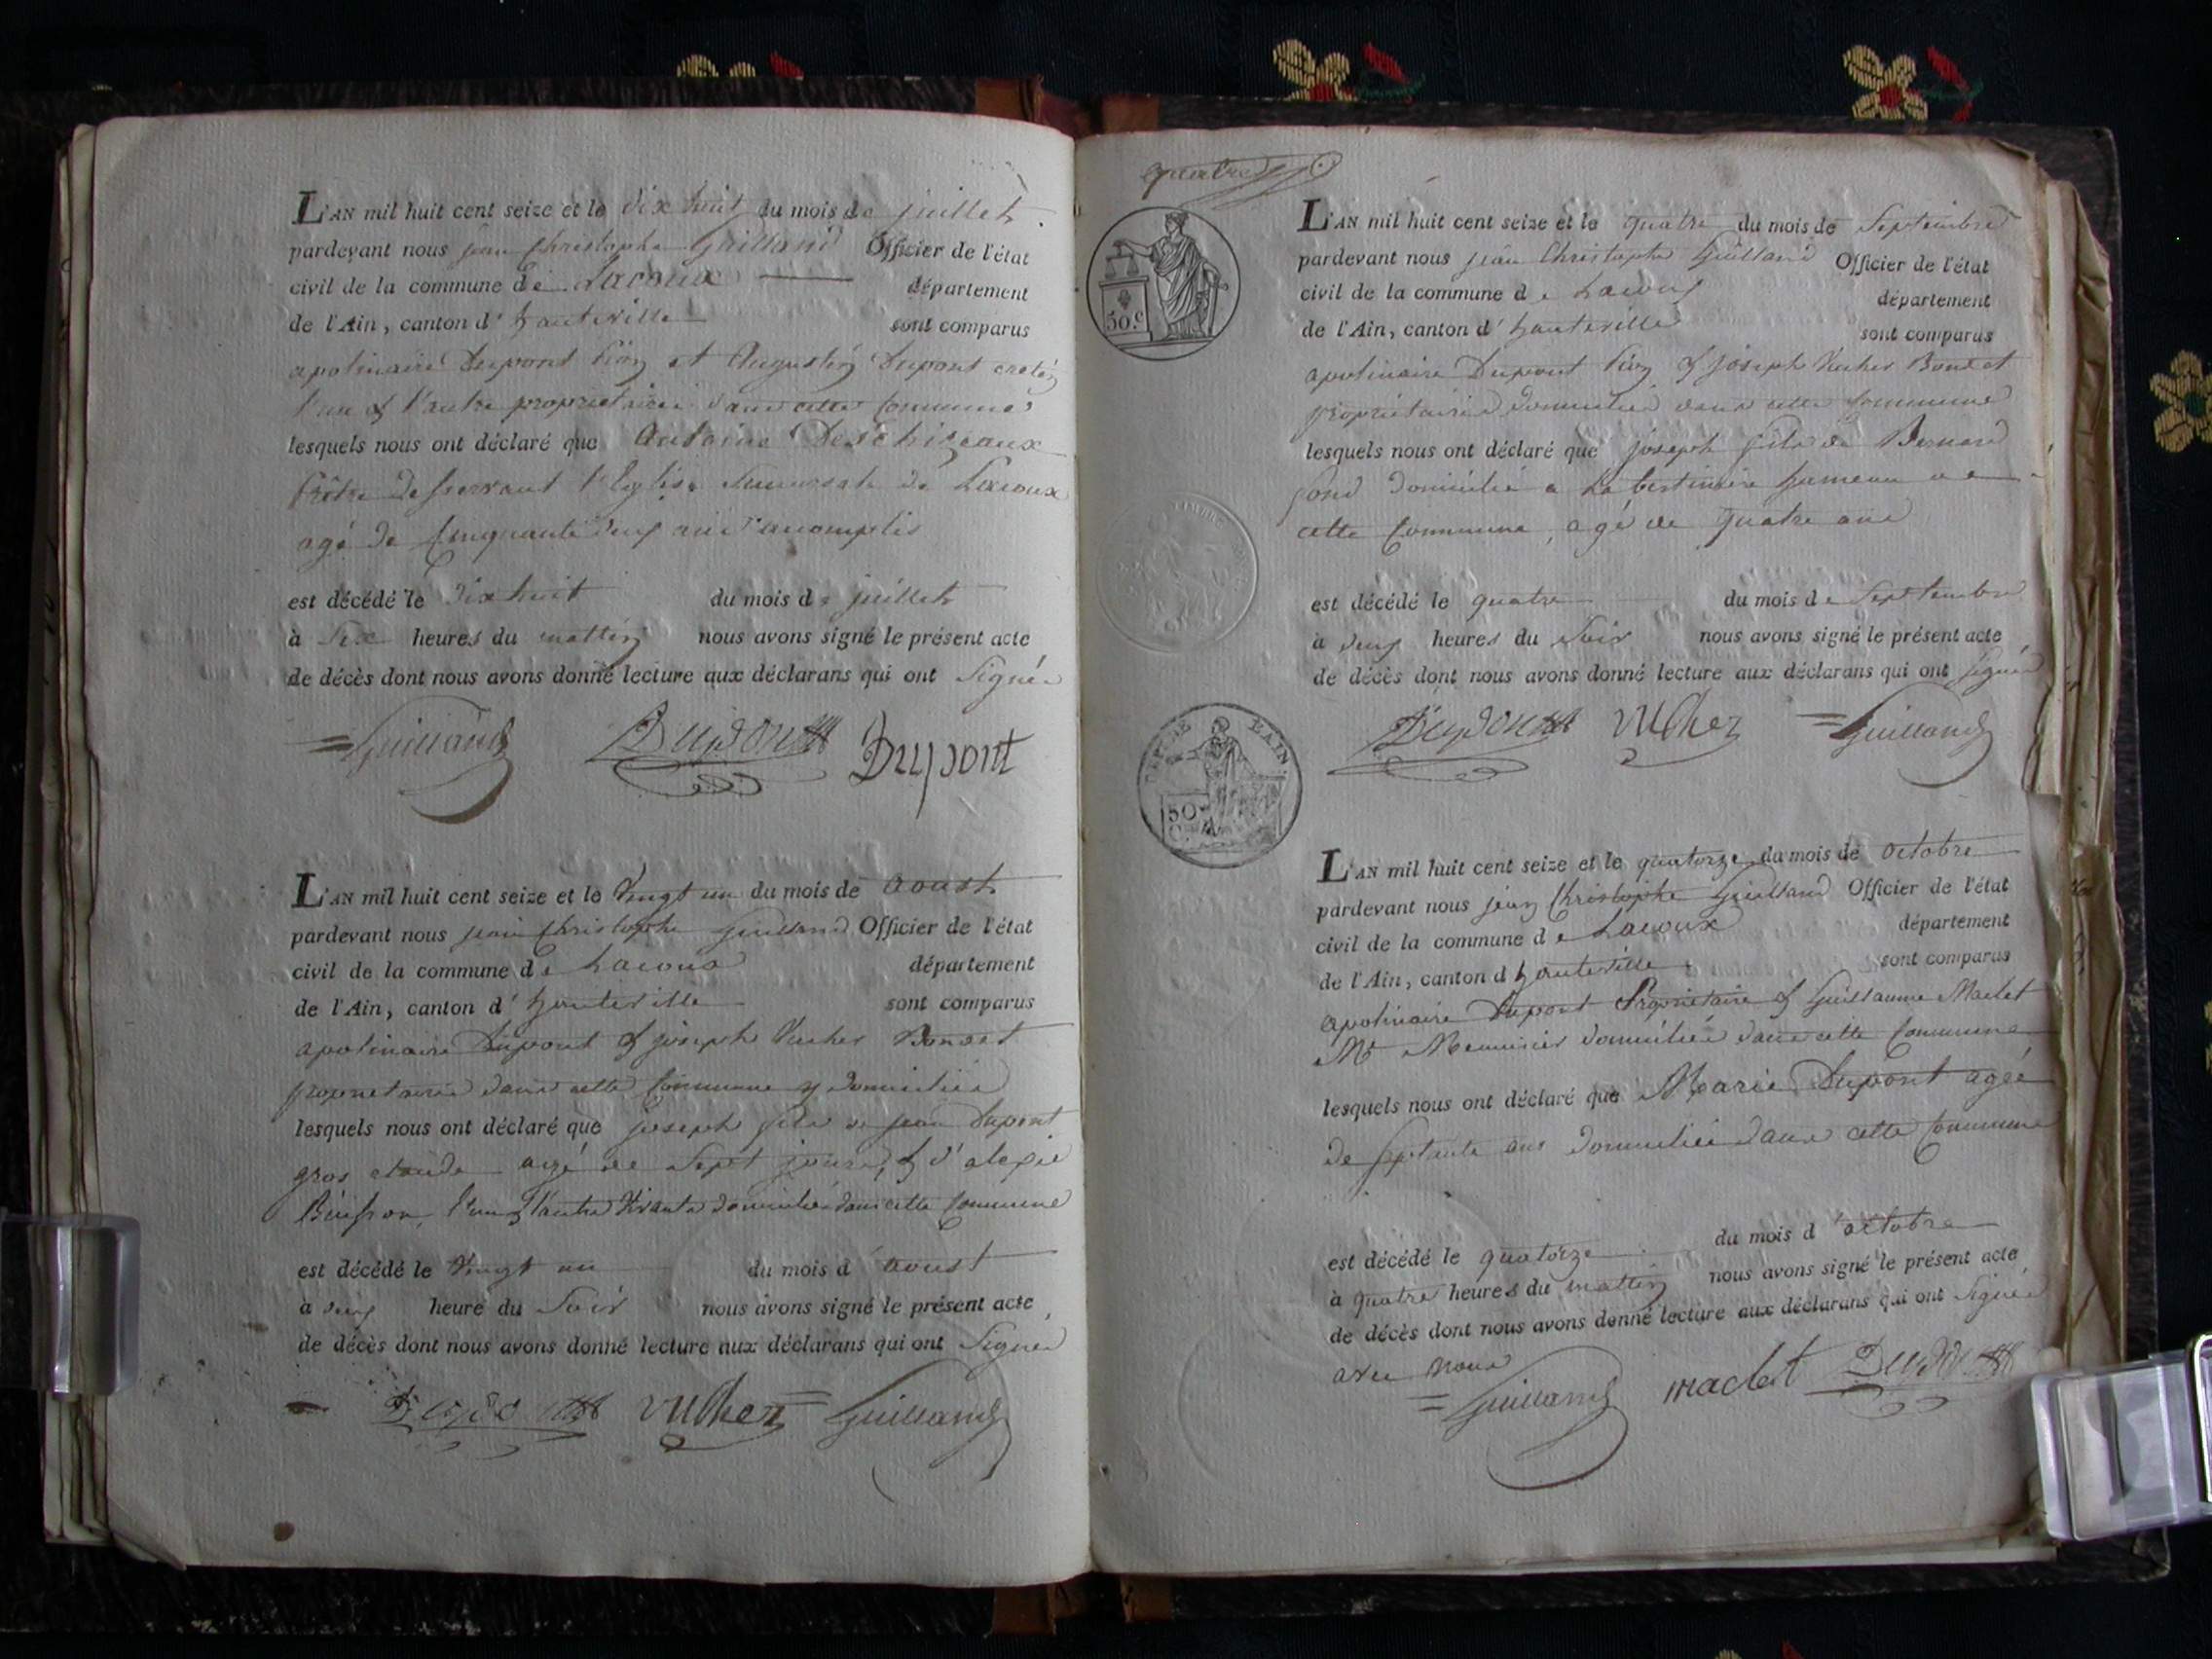 L'AN mil huit cent seize et le dix huit du mois de juillet
pardevant nous jean Christophe Guilland Officier de l'état
civil de la commune de Lacoux département
de l'Ain, canton d'hauteville sont comparus
apolinaire Dupont et Augustin Dupont
l'un & l'autre propriétaires dans cette Commune
lesquels nous ont déclaré que Antoine Deschizeaux
Prêtre desservant l'Eglise succursale de Lacoux
agé de Cinquante deux ans accomplis
est décédé le dix huit du mois de juillet
à six heures du mattin nous avons signé le présent acte
de décès dont nous avons donné lecture aux déclarans qui ont signés
Guilland Dupont Dupont
L'AN mil huit cent seize et le Vingt un du mois de aoust
pardevant nous jean Christophe Guilland Officier de l'état
civil de la commune de Lacoux département
de l'Ain, canton d'hauteville sont comparus
apolinaire Dupont & joseph Vucher Bondet
propriétaires dans cette Commune y domiciliés
lesquels nous ont déclaré que joseph fils de jean Dupont
gros claude agé de sept jours, & d'alexie
Buisson, l'un & l'autre Vivants domiciliés dans cette Commune
est décédé le Vingt un du mois d'aoust
à deux heure du soir nous avons signé le présent acte
de décès dont nous avons donné lecture aux déclarans qui ont signés
Dupont Vucher Guilland
quatre
50.c
L'AN mil huit cent seize et le quatre du mois de Septembre
pardevant nous jean Christophe Guilland Officier de l'état
civil de la commune de Lacoux département
de l'Ain, canton d'hauteville sont comparus
apolinaire Dupont & joseph Vucher Bondet
propriétaires domiciliés dans cette Commune
lesquels nous ont déclaré que joseph fils de Bernard
fond domicilié a hameau de
cette Commune, agé de quatre ans
est décédé le quatre du mois de Septembre
à deux heures du soir nous avons signé le présent acte
de décès dont nous avons donné lecture aux déclarans qui ont signés
Dupont Vucher Guilland
50
L'AN mil huit cent seize et le quatorze du mois de octobre
pardevant nous jean Christophe Guilland Officier de l'état
civil de la commune de Lacoux département
de l'Ain, canton d'hauteville sont comparus
apolinaire Dupont Propriétaire & Guillaume Maclet
Md Menuisier domiciliés dans cette Commune
lesquels nous ont déclaré que Marie Dupont agée
de septante ans domiciliée dans cette Commune
est décédé le quatorze du mois d'octobre
à quatre heures du mattin nous avons signé le présent acte
de décès dont nous avons donné lecture aux déclarans qui ont signés
avec nous
Guilland maclet Dupont